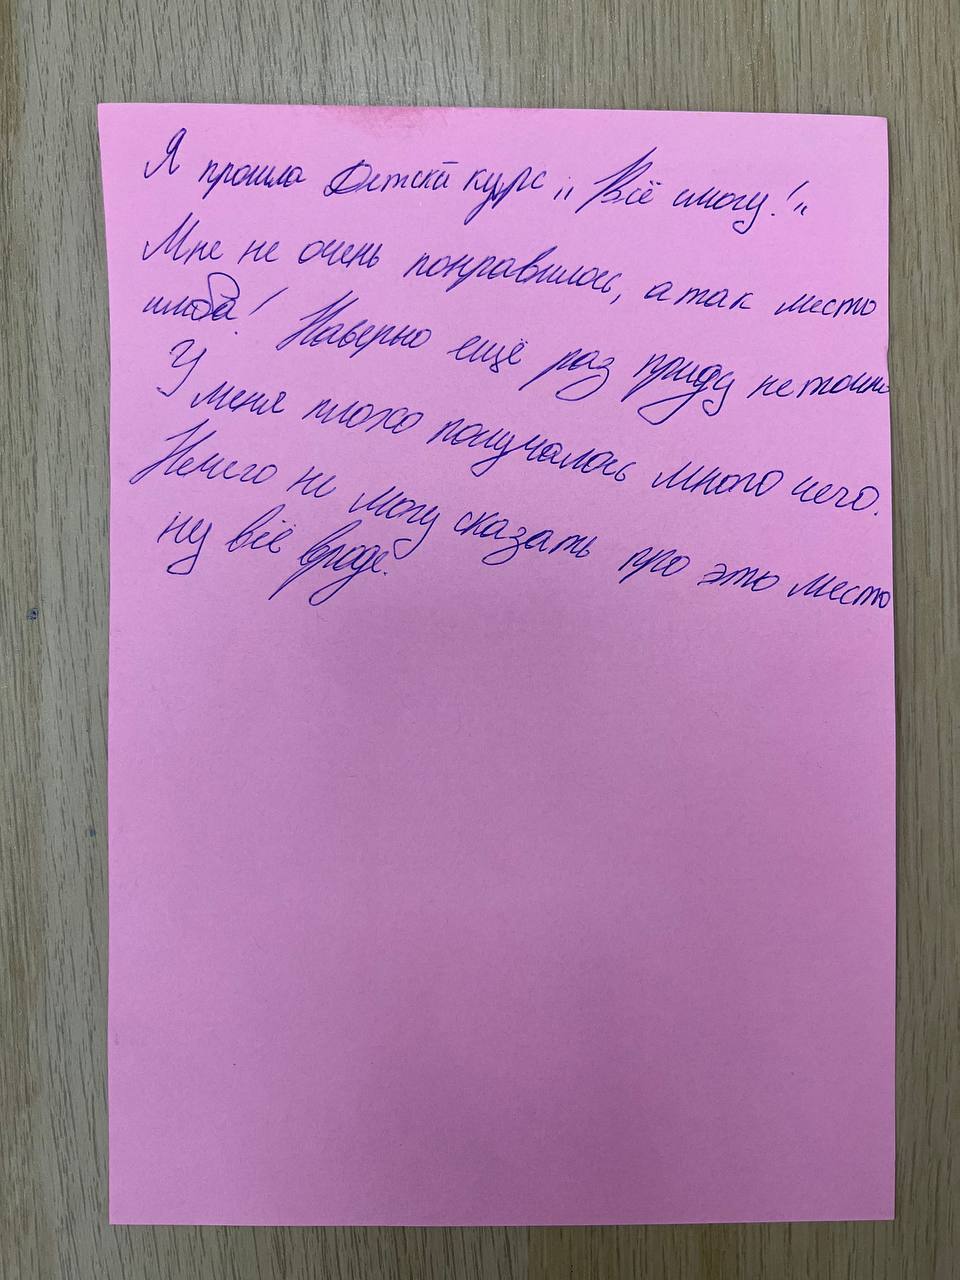 Я прошла Детскй курс „Всё смогу!“
Мне не очень понравилось, а так место
имба! Наверно ещё раз приду не точно
У меня плохо получалось много чего.
Нечего не могу сказать про это место
ну всё вроде.